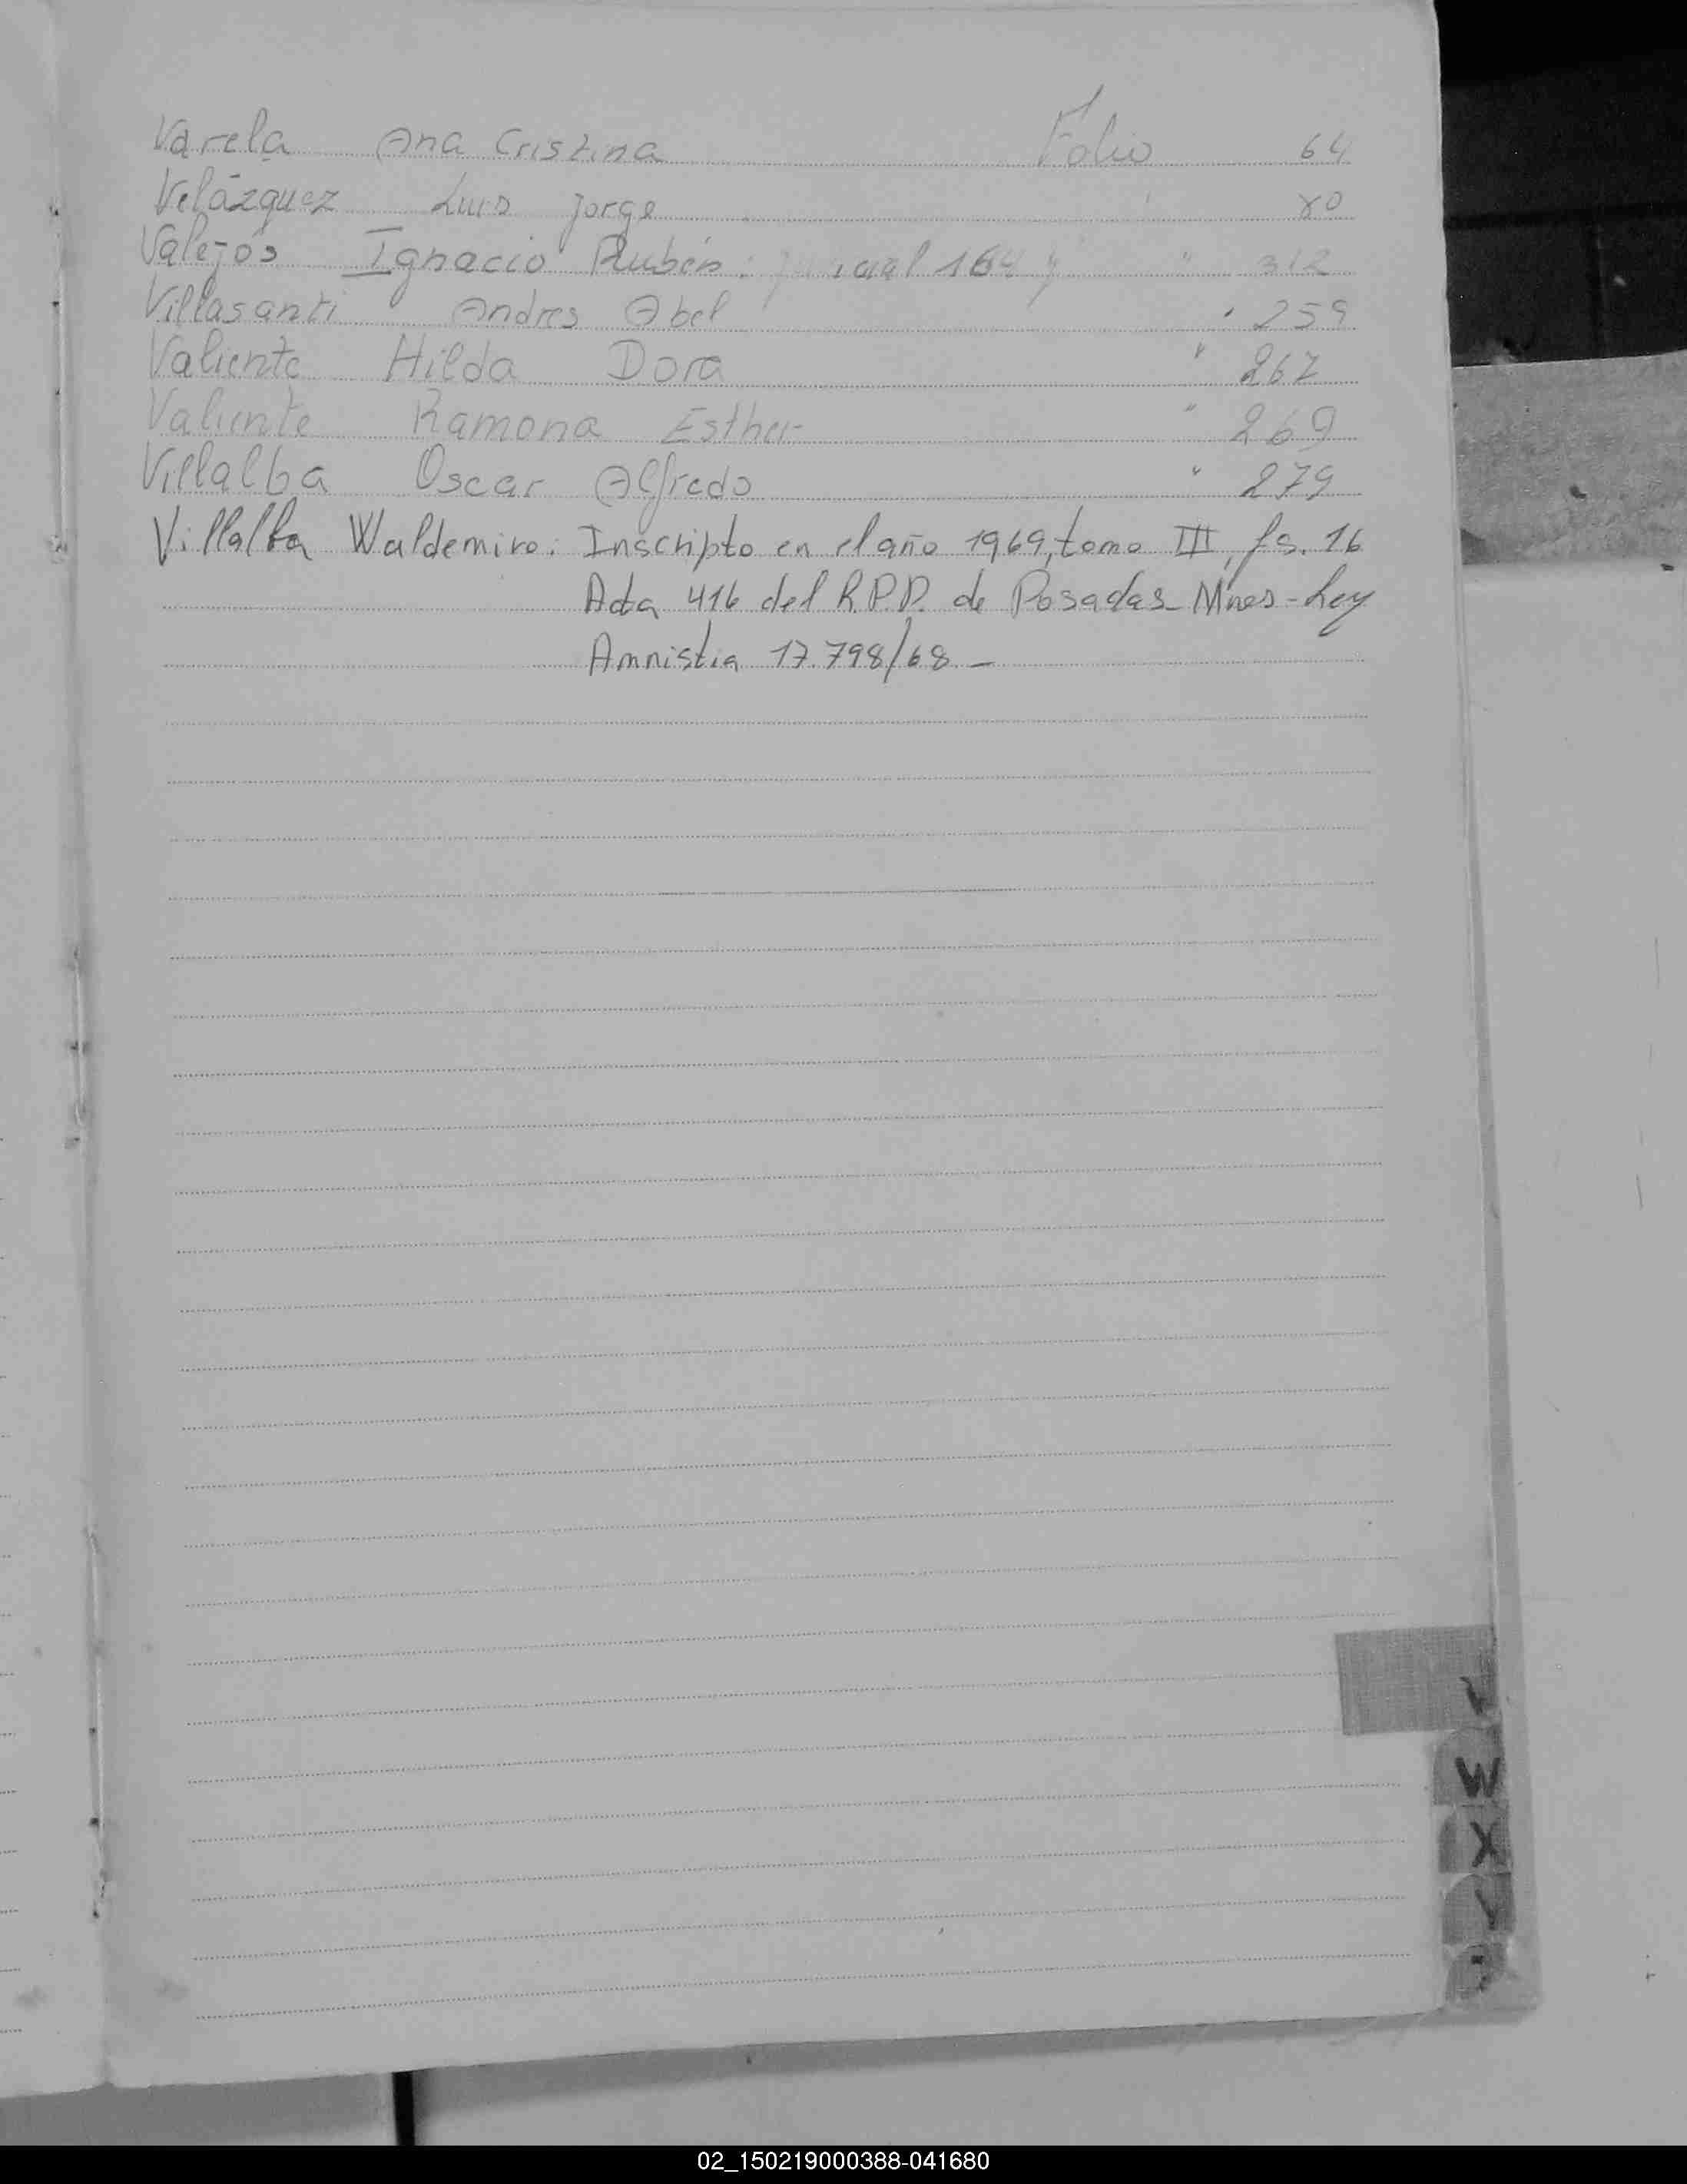 Varela Ana Cristina Folio 64
Velázquez Luis Jorge " 80
Valejos Ignacio Rubén: 164 y " 312
Villasanti Andres Abel " 259
Valiente Hilda Dora " 267
Valiente Ramona Esther " 269
Villalba Oscar Alfredo " 279
Villalba Waldemiro: Inscripto en el año 1969, tomo III, fs. 16
Acta 416 del R.P.P. de Posadas Mnes - Ley
Amnistia 17.798/68 -
V
W
X
Y
02_150219000388-041680